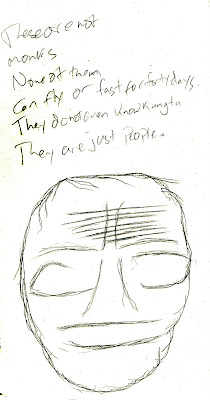 These are not
monks
None of them
Can fly or fast for forty days.
They don't even know Kung fu
They are just People.